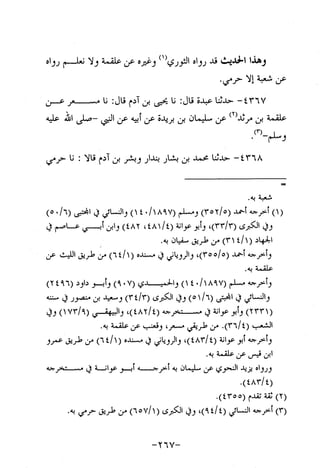 وهذا الحديث قد رواه الثوري(١) وغيره عن علقمة ولا نعلم رواه
عن شعبة إلا حرمي.
٤٣٦٧- حدثنا عبدة قال: نا يحيى بن آدم قال: نا مسعر عن
علقمة بن مرثد(٢) عن سليمان بن بريدة عن أبيه عن النبي -صلى الله عليه
وسلم-(٣).
٤٣٦٨- حدثنا محمد بن بشار بندار وبشر بن آدم قالا : نا حرمي
شعبة به.
(١) أخرجه أحمد (٣٥٢/٥) ومسلم (١٤٠/١٨٩٧) والنسائي في المجتبى (٥٠/٦)
وفي الكبرى (٣٣/٣)، وأبو عوانة (٤٨١/٤، ٤٨٢) وابن أبي عاصم في
الجهاد (٣١٤/١) من طريق سفيان به.
وأخرجه أحمد (٣٥٥/٥)، والروياني في مسنده (٦٤/١) من طريق الليث عن
علقمة به.
وأخرجه مسلم (١٤٠/١٨٩٧) والحميدي (٩٠٧) وأبو داود (٢٤٩٦)
والنسائي في المجتبى (٥١/٦) وفي الكبرى (٣٤/٣) وسعيد بن منصور في سننه
(٢٣٣١) وأبو عوانة في مستخرجه (٤٨٢/٤)، والبيهقي (١٧٣/٩) وفي
الشعب (٣٦/٤). من طريقي مسعر، وقعنب عن علقمة به.
وأخرجه أبو عوانة (٤٨٣/٤)، والروياني في مسنده (٦٤/١) من طريق عمرو
ابن قيس عن علقمة به.
ورواه يزيد النحوي عن سليمان به أخرجه أبو عوانة في مستخرجه
(٤٨٣/٤).
(٢) ثقة تقدم (٤٣٥٥).
(٣) أخرجه النسائي (٩٤/٤)، وفي الكبرى (٦٥٧/١) من طريق حرمي به.
-٢٦٧-